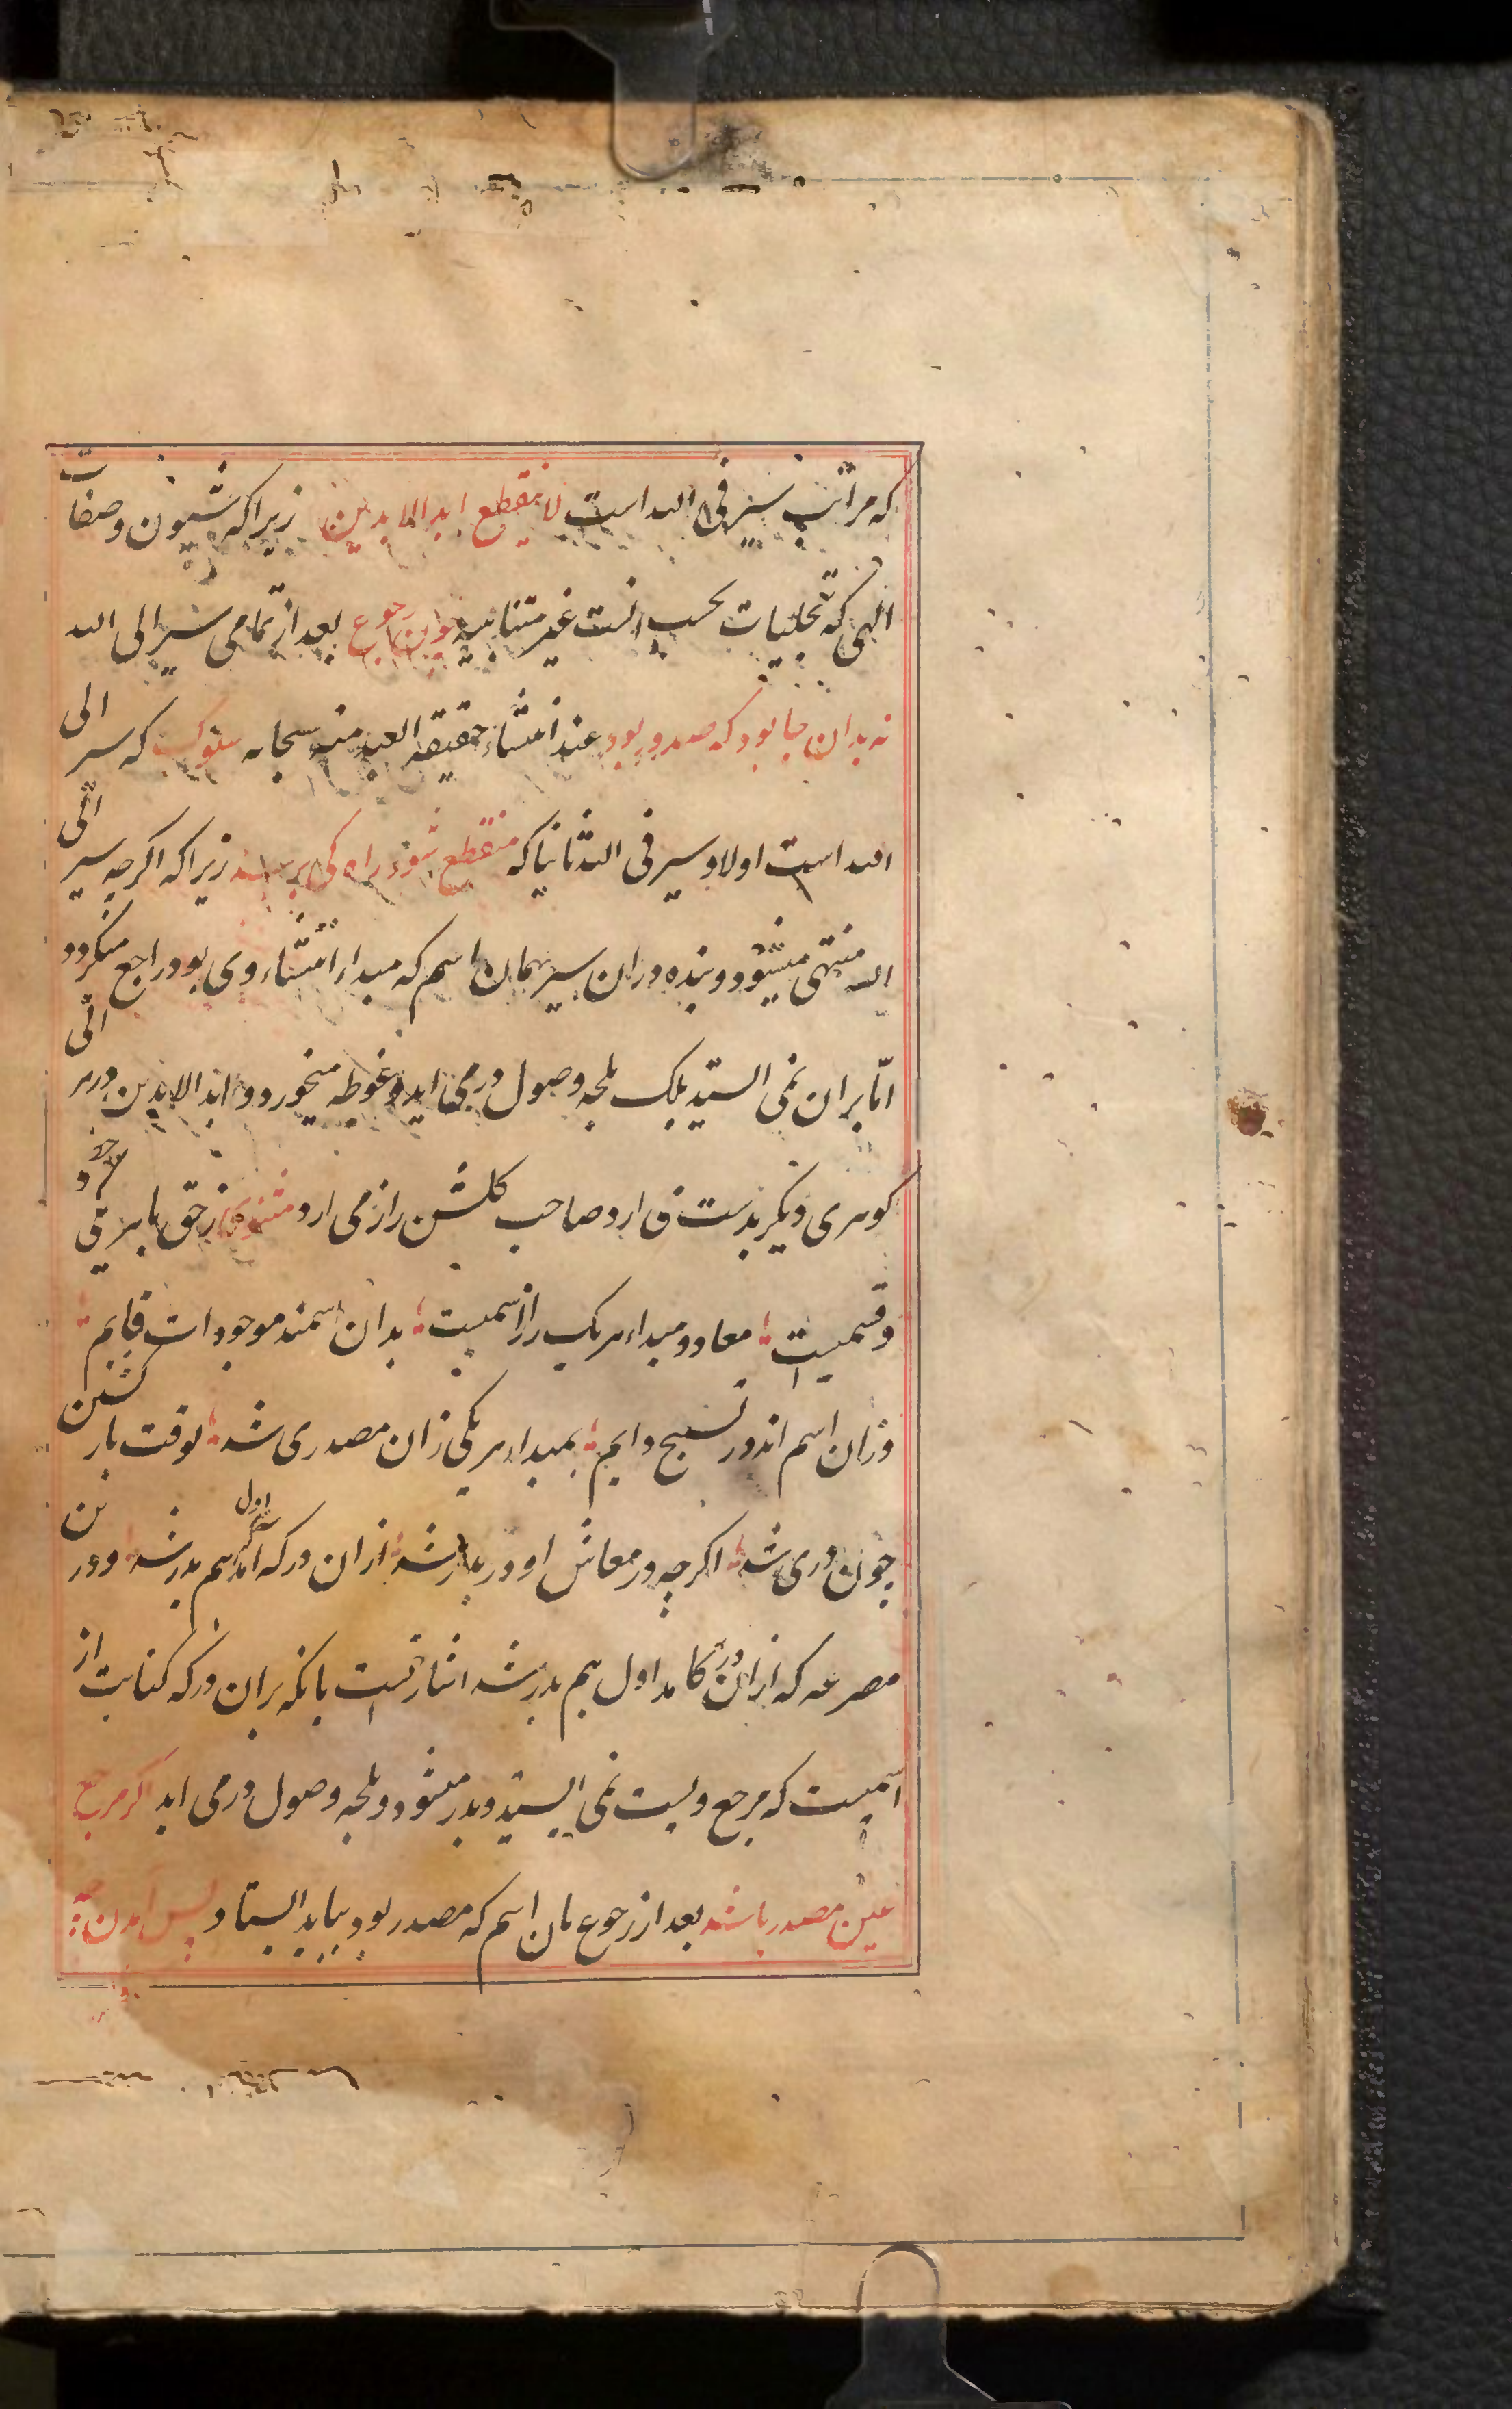 که مراتب سیر فی الله است لا ینقطع ابد الابدین زیراکه شیون و صفات
الهی که تجلیات بحسب انست غیر متناهیه چون رجوع بعد از تمامی سیر الی الله
نه بدان جا بود که صدور بود عند انتشاء حقیقة العبد منه سبحانه سلوک که سیر الی
الله است اولا و سیر فی الله ثانیا که منقطع شود راه کی برسد زیراکه اکرچه سیر الی
الله منتهی میشود و بنده دران سیر بهمان اسم که مبداء انتشاء وی بود راجع میکردد
امّا بران نمی ایستد بلک بلجه وصول در می اید و غوطه میخورد و ابد الابدین در هر انی
کوهری دیکر بدست می ارد صاحب کلشن راز می ارد مثنوی از حق با هر یکی حظ و
و قسمیست معاد و مبداء هر یک راز اسمیست بدان اسمند موجودات قایم
وزان اسم اند در تسبیح دایم بمبداء هر یکی زان مصدری شد بوقت بازکشتن
چون دری شد اکرچه در معاش او در بدر شد ازان در که امد اول هم بدر شد و درین
مصرعه که ازان در کامد اول هم بدر شد اشارتست بانکه بران در که کنایت از
اسمیست که مرجع ویست نمی ایستد و بدر میشود و بلجه وصول در می اید اکر مرجع
عین مصدر باشد بعد از رجوع بان اسم که مصدر بود بباید ایستاد پس امدن